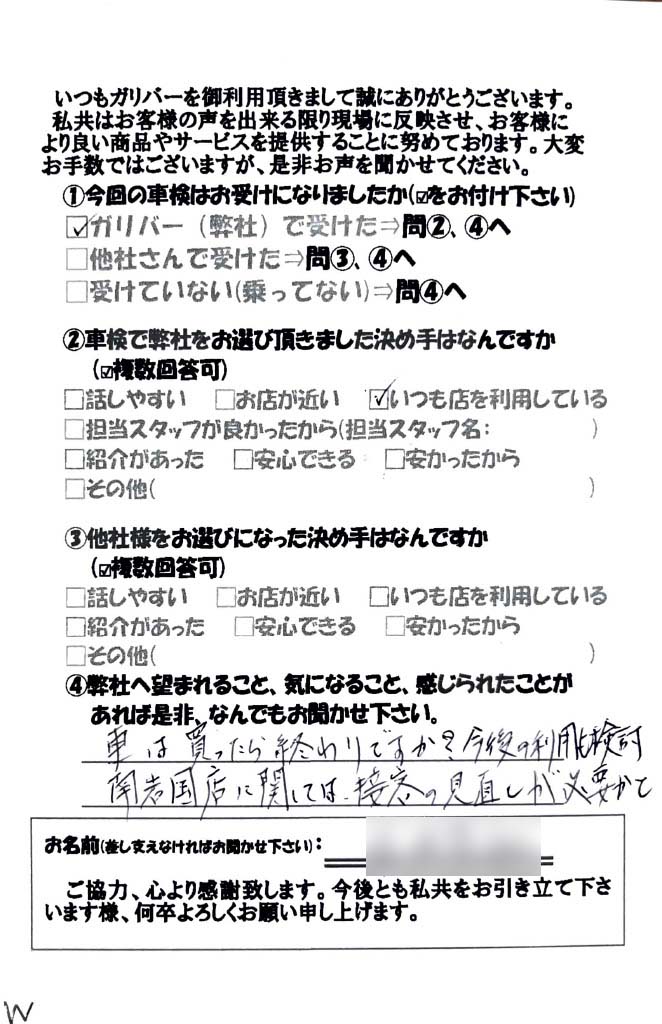 いつもガリバーを御利用頂きまして誠にありがとうございます。
私共はお客様の声を出来る限り現場に反映させ、お客様に
より良い商品やサービスを提供することに努めております。大変
お手数ではございますが、是非お声を聞かせてください。
①今回の車検はお受けになりましたか(☑をお付け下さい)
☑ガリバー（弊社）で受けた⇒問②、④へ
□他社さんで受けた⇒問③、④へ
□受けていない(乗ってない)⇒問④へ
②車検で弊社をお選び頂きました決め手はなんですか
(☑複数回答可)
□話しやすい □お店が近い ☑いつも店を利用している
□担当スタッフが良かったから(担当スタッフ名: )
□紹介があった □安心できる □安かったから
□その他( )
③他社様をお選びになった決め手はなんですか
(☑複数回答可)
□話しやすい □お店が近い □いつも店を利用している
□紹介があった □安心できる □安かったから
□その他( )
④弊社へ望まれること、気になること、感じられたことが
あれば是非、なんでもお聞かせ下さい。
車は買ったら終わりですか？今後の利用も検討
南岩国店に関しては、接客の見直しが必要かと
お名前(差し支えなければお聞かせ下さい):
ご協力、心より感謝致します。今後とも私共をお引き立て下さ
います様、何卒よろしくお願い申し上げます。
W